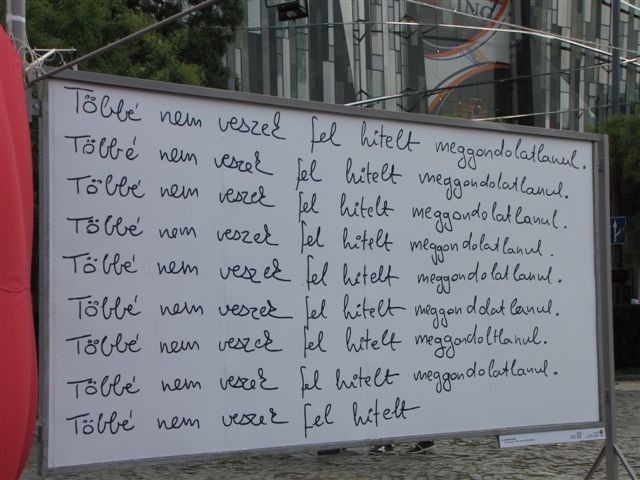 LING
Többé nem veszek fel hitelt meggondolatlanul.
Többé nem veszek fel hitelt meggondolatlanul.
Többé nem veszek fel hitelt meggondolatlanul.
Többé nem veszek fel hitelt meggondolatlanul.
Többé nem veszek fel hitelt meggondolatlanul.
Többé nem veszek fel hitelt meggondolatlanul.
Többé nem veszek fel hitelt meggondoltlanul.
Többé nem veszek fel hitelt meggondolatlanul.
Többé nem veszek fel hitelt